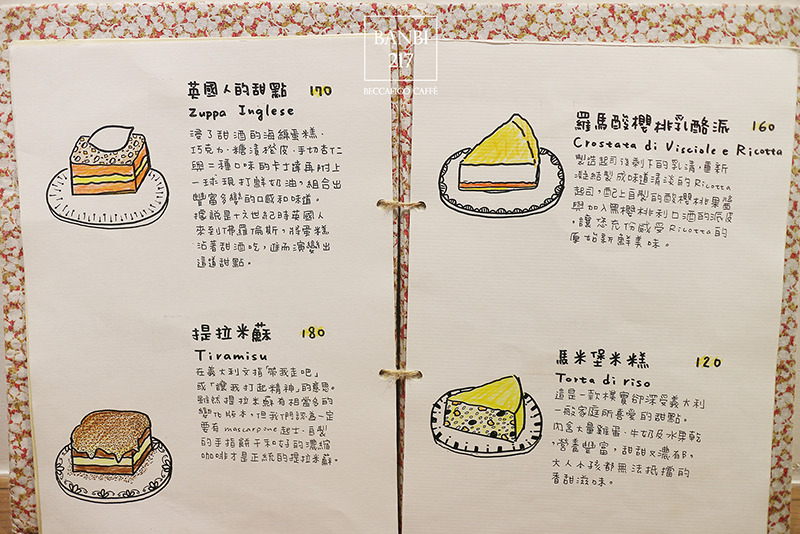 BANBI
217
BECCAFICO CAFFÉ
英國人的甜點 170
Zuppa Inglese
浸了甜酒的海綿蛋糕、
巧克力、糖漬橙皮、手切杏仁
與三種口味的卡士達再附上
一球現打鮮奶油,組合出
豐富多變的口感和味道。
據說是十六世紀時英國人
來到佛羅倫斯,將蛋糕
沾著甜酒吃,進而演變出
這道甜點。
提拉米蘇 180
Tiramisu
在義大利文指「帶我走吧」
或「讓我打起精神」的意思。
雖然提拉米蘇有相當多的
變化版本,但我們認為一定
要有mascarpone起士、自製
的手指餅干和好的濃縮
咖啡才是正統的提拉米蘇。
羅馬酸櫻桃乳酪派 160
Crostata di Visciole e Ricotta
製造起司後剩下的乳清,重新
凝結製成味道清淡的Ricotta
起司,配上自製的酸櫻桃果醬
與加入黑櫻桃利口酒的派皮
,讓您充份感受Ricotta的
原始新鮮美味。
馬米堡米糕 120
Torta di riso
這是一款樸實卻深受義大利
一般家庭所喜愛的甜點。
內含大量雞蛋、牛奶及水果乾
,營養豐富,甜甜又濃郁,
大人小孩都無法抵擋的
香甜滋味。